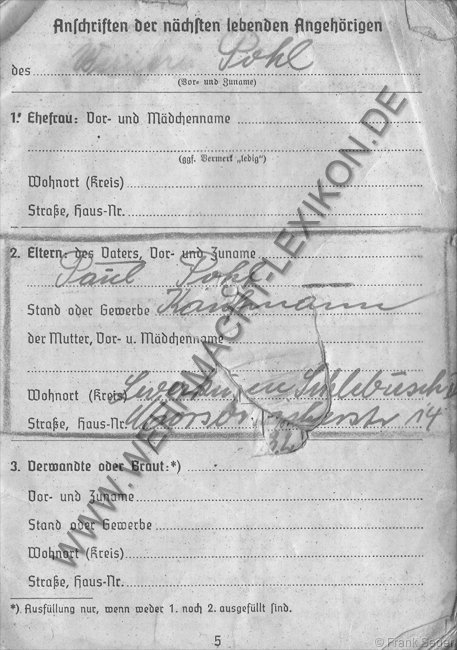 Anschriften der nächsten lebenden Angehörigen
des Werner Pohl
(Vor- und Zuname)
1. Ehefrau: Vor- und Mädchenname
(ggf. Vermerk „ledig“)
Wohnort (Kreis)
Straße, Haus-Nr.
2. Eltern: des Vaters, Vor- und Zuname
Paul Pohl
Stand oder Gewerbe Kaufmann
der Mutter, Vor- u. Mädchenname
Wohnort (Kreis) Leverkusen Schlebusch
Straße, Haus-Nr. 14
3. Verwandte oder Braut:*)
Vor- und Zuname
Stand oder Gewerbe
Wohnort (Kreis)
Straße, Haus-Nr.
*) Ausfüllung nur, wenn weder 1. noch 2. ausgefüllt sind.
5
WWW.WEHRMACHT-LEXIKON.DE
© Frank Seder